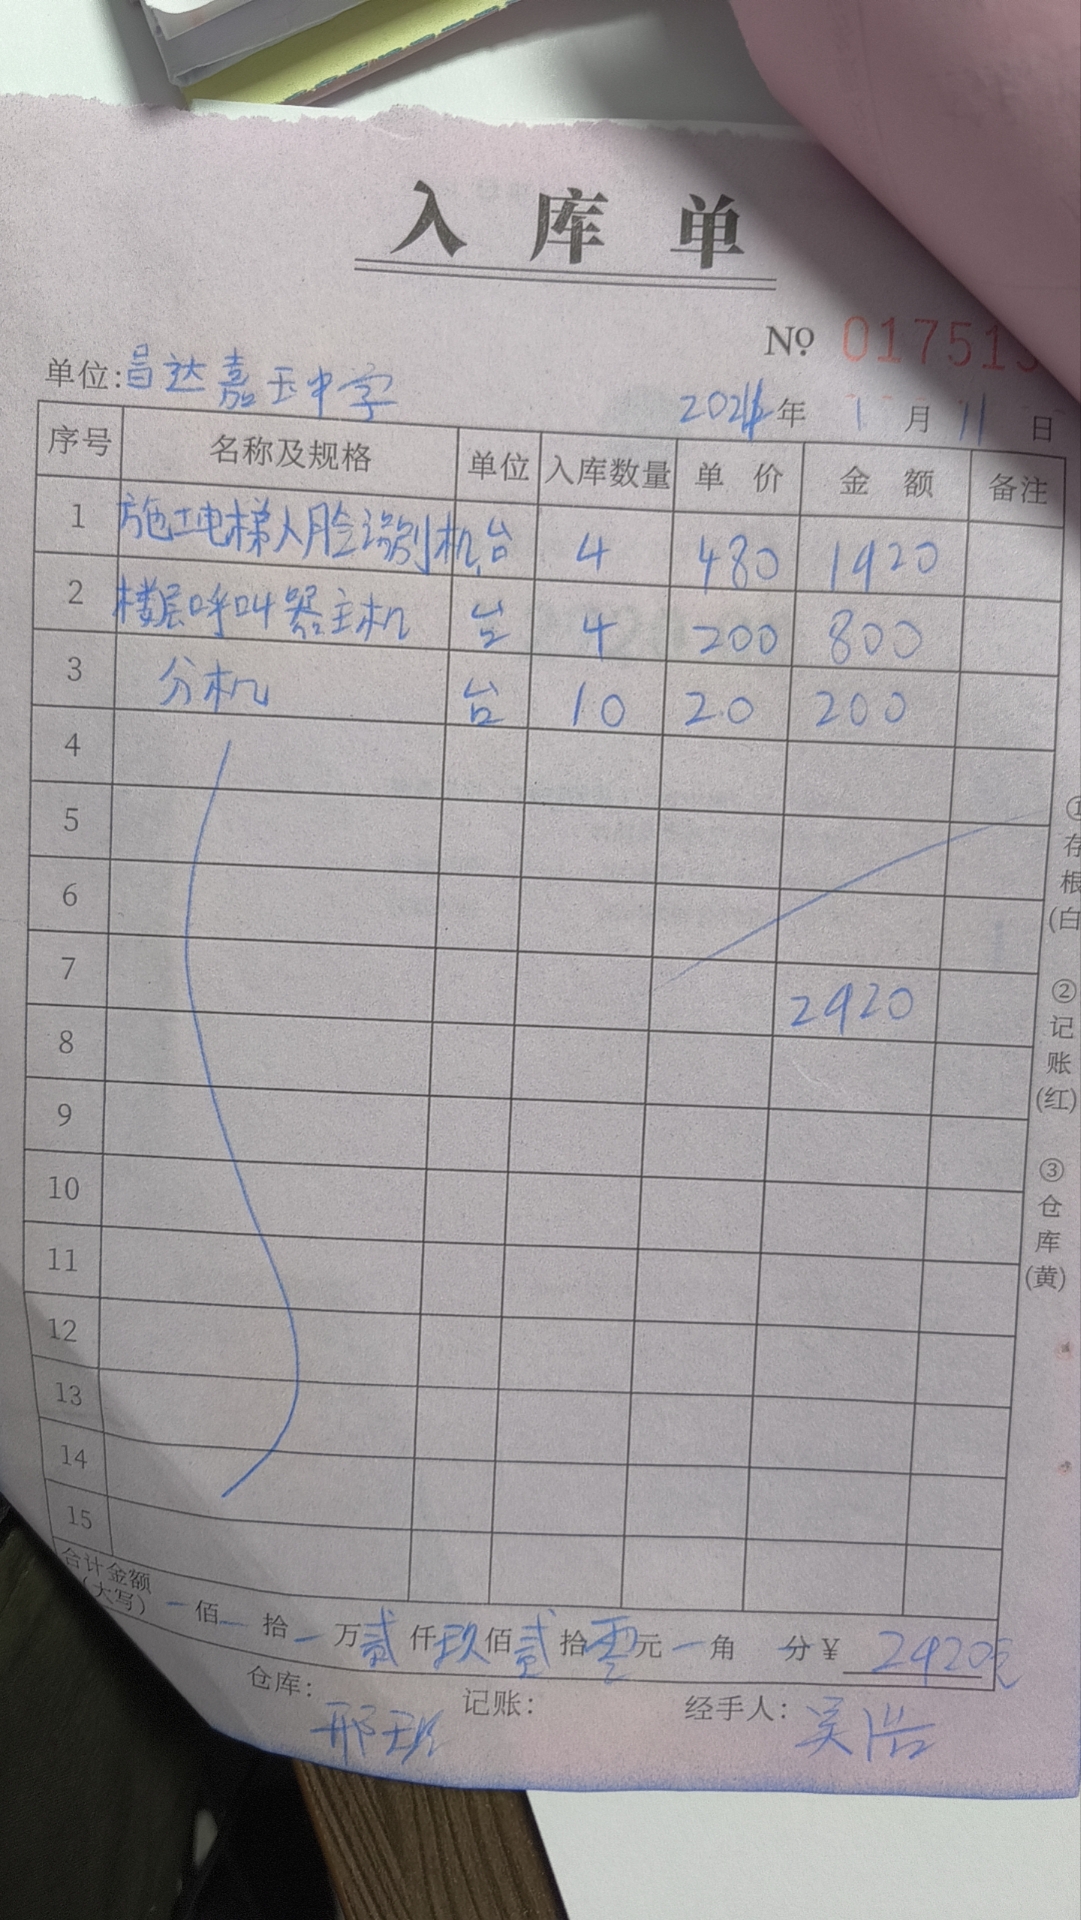 入库单
№ 017513
单位:昌达嘉玉中学
年 1 月 11 日
序号 名称及规格 单位 入库数量 单价 金额 备注
1 施工电梯人脸识别机 台 4 480 1920
2 楼层呼叫器主机 台 4 200 800
3 分机 台 10 20 200
4
5
6
7 2920
8
9
10
11
12
13
14
15
合计金额
(大写) 佰 拾 万贰仟玖佰贰拾零元 角 分¥ 2920元
仓库: 邢 记账: 经手人: 吴浩
①存根(白
②记账(红)
③仓库(黄)